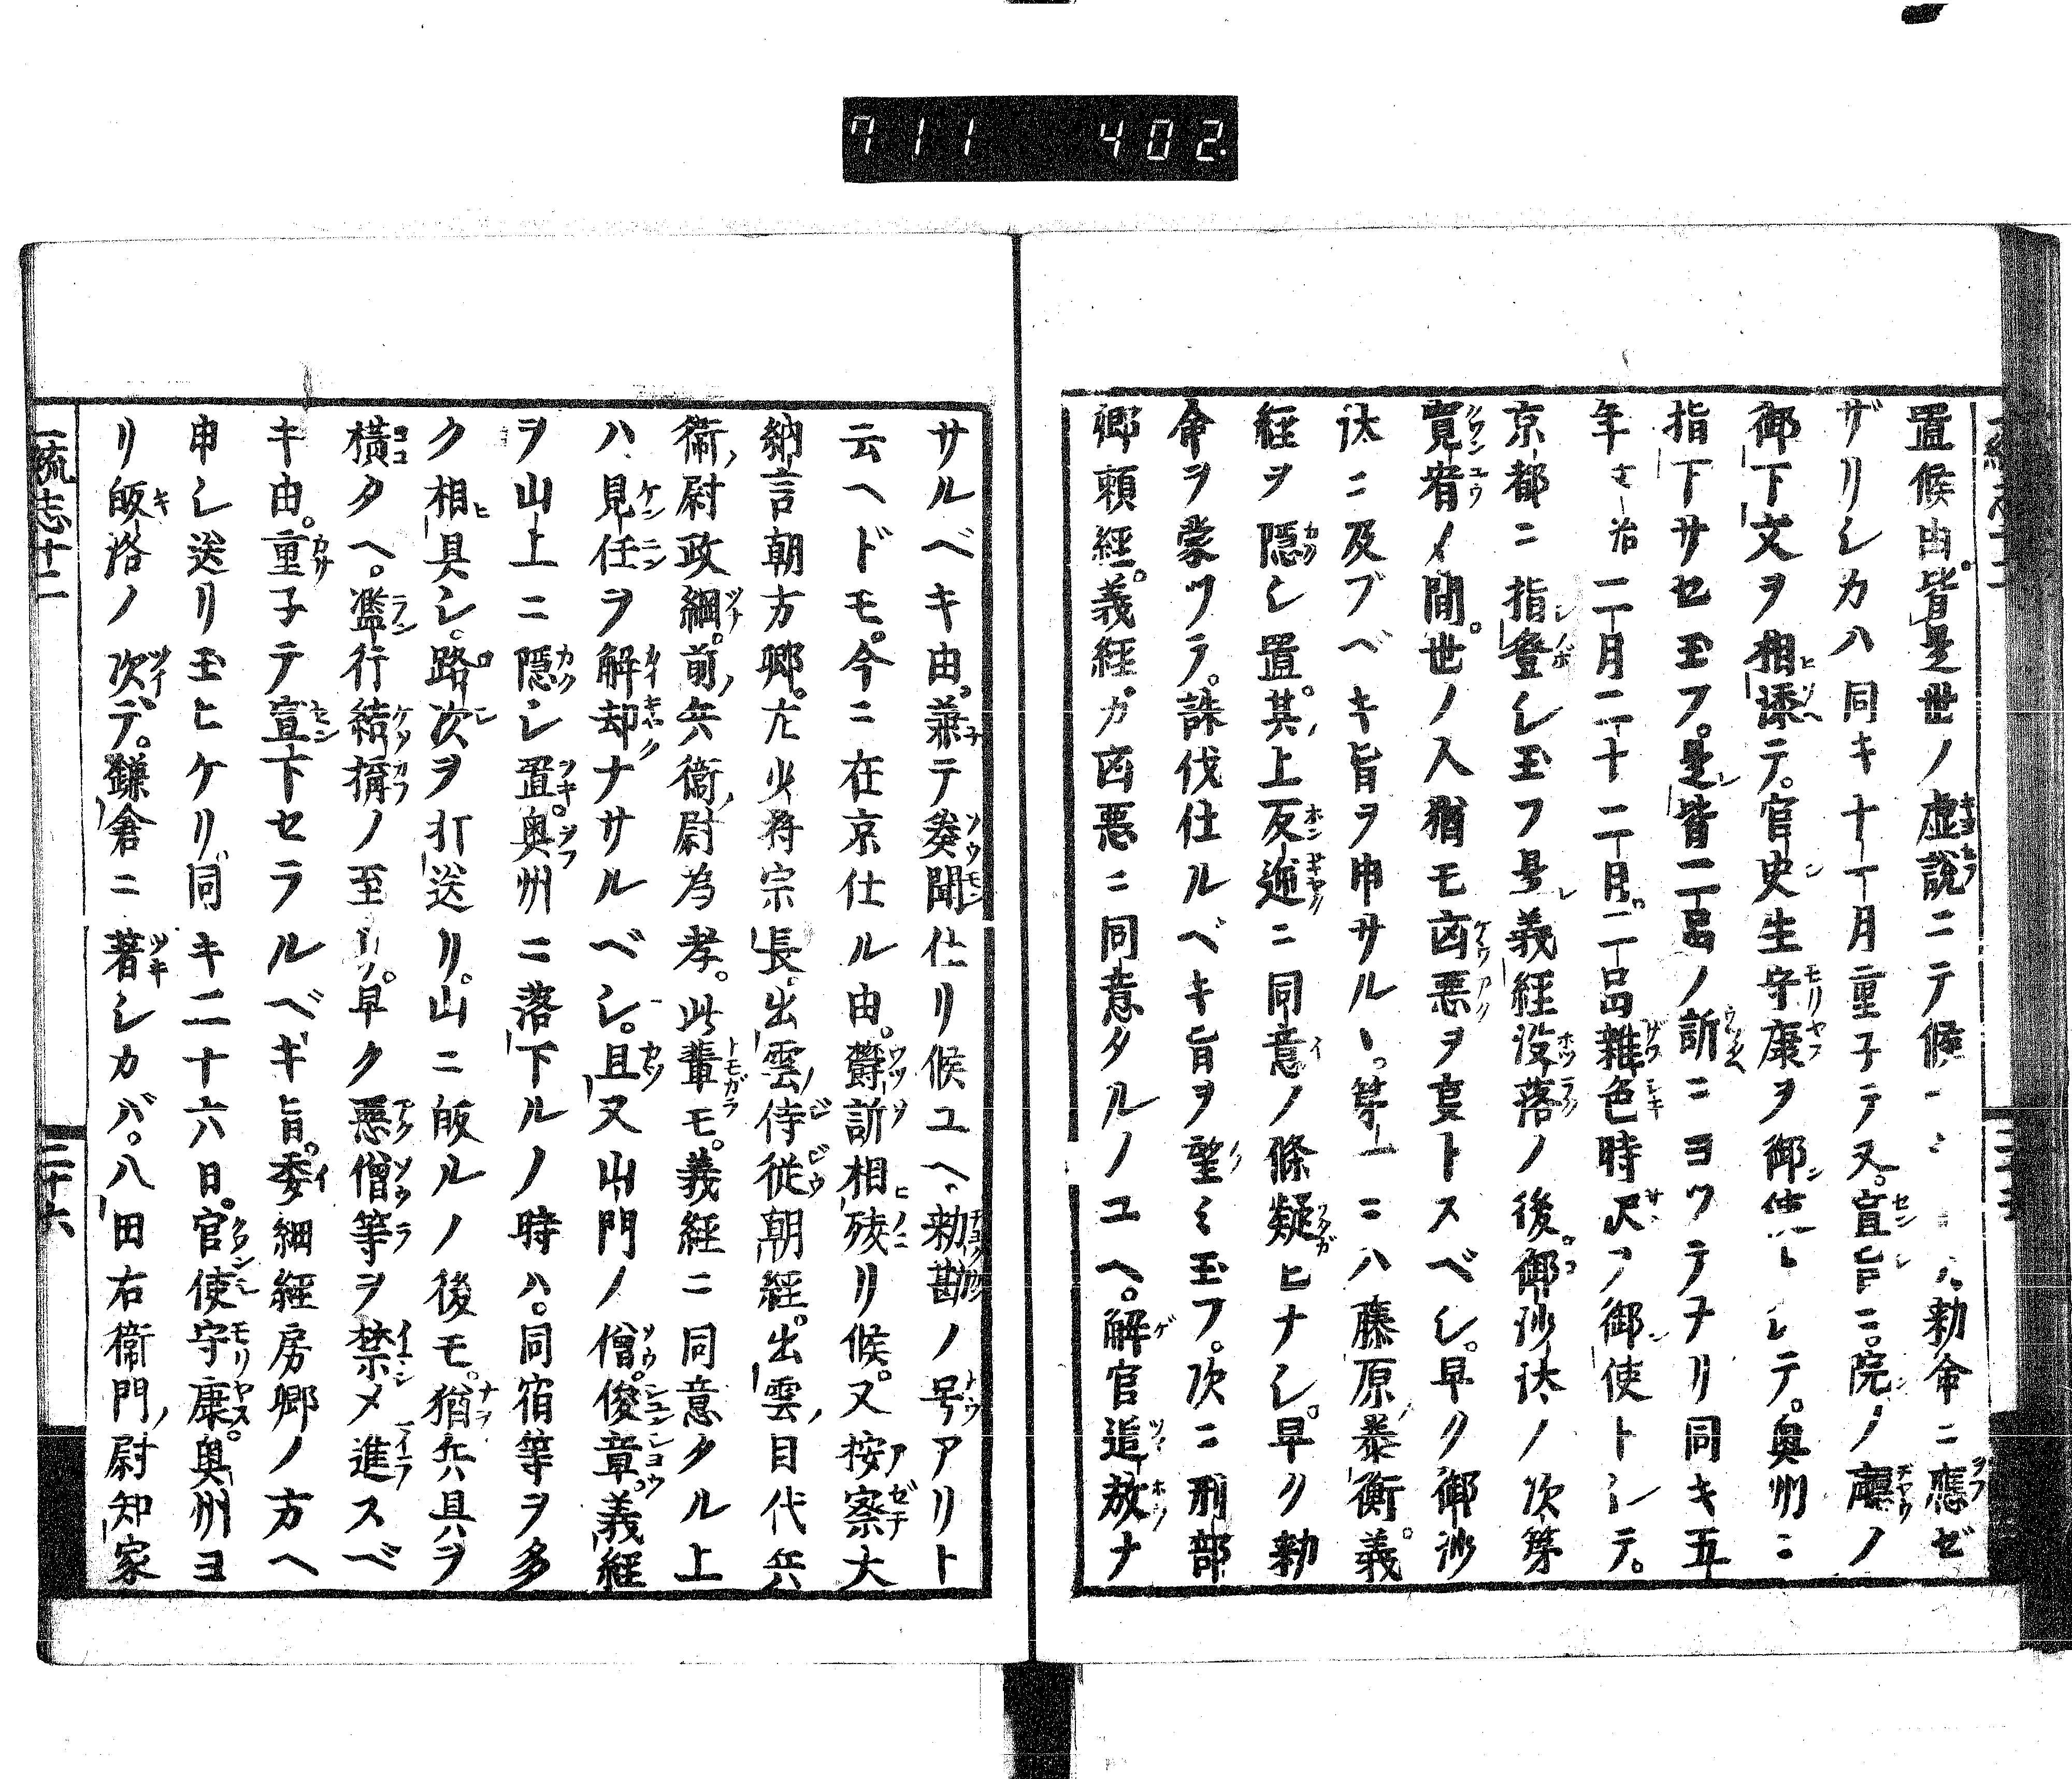 711 402.
置候由。皆是世ノ虚説ニテ候 勅命ニ應ゼ
ザリシカハ同キ十一月重子テ又。宣旨ニ。院ノ廳ノ
御下文ヲ相添テ。官史生守康ヲ御使トシテ。奥州ニ
指下サセ玉フ。是皆二品ノ訴ニヨツテナリ同キ五
年 治二月二十二月。二品雑色時沢ヲ御使トシテ。
京都ニ指登シ玉フ是義経没落ノ後御沙汰ノ次第
寛宥ノ間。世ノ人猶モ凶悪ヲ変トスベシ。早ク御沙
汰ニ及ブベキ旨ヲ申サル。第一ニハ藤原泰衡。義
経ヲ隠シ置。其上反逆ニ同意ノ條疑ヒナシ。早ク勅
命ヲ蒙ツテ。誅伐仕ルベキ旨ヲ望ミ玉フ。次ニ刑部
卿頼経。義経ガ凶悪ニ同意タルノユヘ。解官追放ナ
サルベキ由。兼テ奏聞仕リ候ユヘ、勅勘ノ号アリト
云ヘドモ。今ニ在京仕ル由。欝訴相殘リ候。又按察大
納言朝方卿。左少将宗長。出雲侍従朝経。出雲目代兵
衛尉政綱。前兵衛尉為孝。此輩モ。義経ニ同意タル上
ハ見任ヲ解却ナサルベシ。且又山門ノ僧。俊章義経
ヲ山上ニ隠シ置。奥州ニ落下ルノ時ハ。同宿等ヲ多
ク相具シ。路次ヲ打送リ。山ニ皈ルノ後モ。猶兵具ヲ
横タヘ。濫行結搆ノ至リ。早ク悪僧等ヲ禁メ進スベ
キ由。重子テ宣下セラルベキ旨。委細経房卿ノ方ヘ
申シ送リ玉ヒケリ同キ二十六日。官使守康。奥州ヨ
リ皈洛ノ次デ。鎌倉ニ著シカバ。八田右衛門尉知家
流志十二
二十六